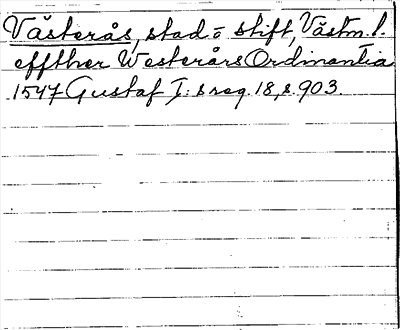 Västerås, stad o stift, Västm. l.
effther Westerårs Ordinantia
1547 Gustaf I:s reg. 18, s. 903.